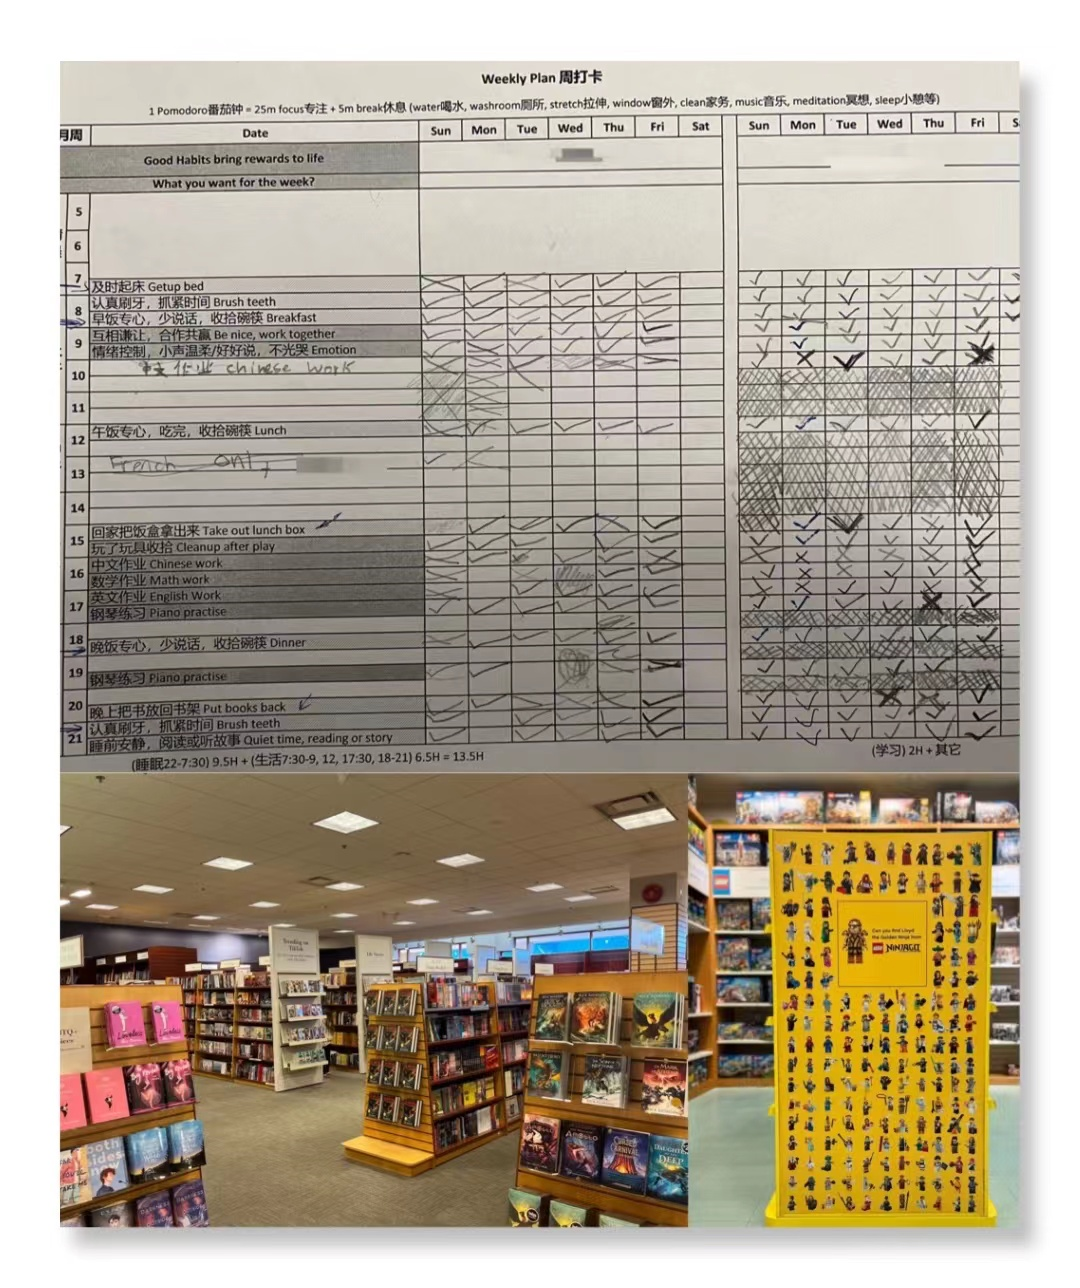 Weekly Plan 周打卡
1 Pomodoro番茄钟 = 25m focus专注 + 5m break休息 (water喝水, washroom厕所, stretch拉伸, window窗外, clean家务, music音乐, meditation冥想, sleep小憩等)
月周 Date Sun Mon Tue Wed Thu Fri Sat Sun Mon Tue Wed Thu Fri S
Good Habits bring rewards to life
What you want for the week?
5
6
7
及时起床 Getup bed
认真刷牙，抓紧时间 Brush teeth
8
早饭专心，少说话，收拾碗筷 Breakfast
互相谦让，合作共赢 Be nice, work together
9
情绪控制，小声温柔/好好说，不光哭 Emotion
作业 chinese work
10
11
午饭专心，吃完，收拾碗筷 Lunch
12
French only
13
14
回家把饭盒拿出来 Take out lunch box
15
玩了玩具收拾 Cleanup after play
中文作业 Chinese work
16
数学作业 Math work
英文作业 English Work
17
钢琴练习 Piano practise
18
晚饭专心，少说话，收拾碗筷 Dinner
19
钢琴练习 Piano practise
20
晚上把书放回书架 Put books back
认真刷牙，抓紧时间 Brush teeth
21
睡前安静，阅读或听故事 Quiet time, reading or story
(睡眠22-7:30) 9.5H + (生活7:30-9, 12, 17:30, 18-21) 6.5H = 13.5H
(学习) 2H + 其它
Trending on
TikTok
Can you find Lloyd
the Golden Ninja
LEGO NINJAGO